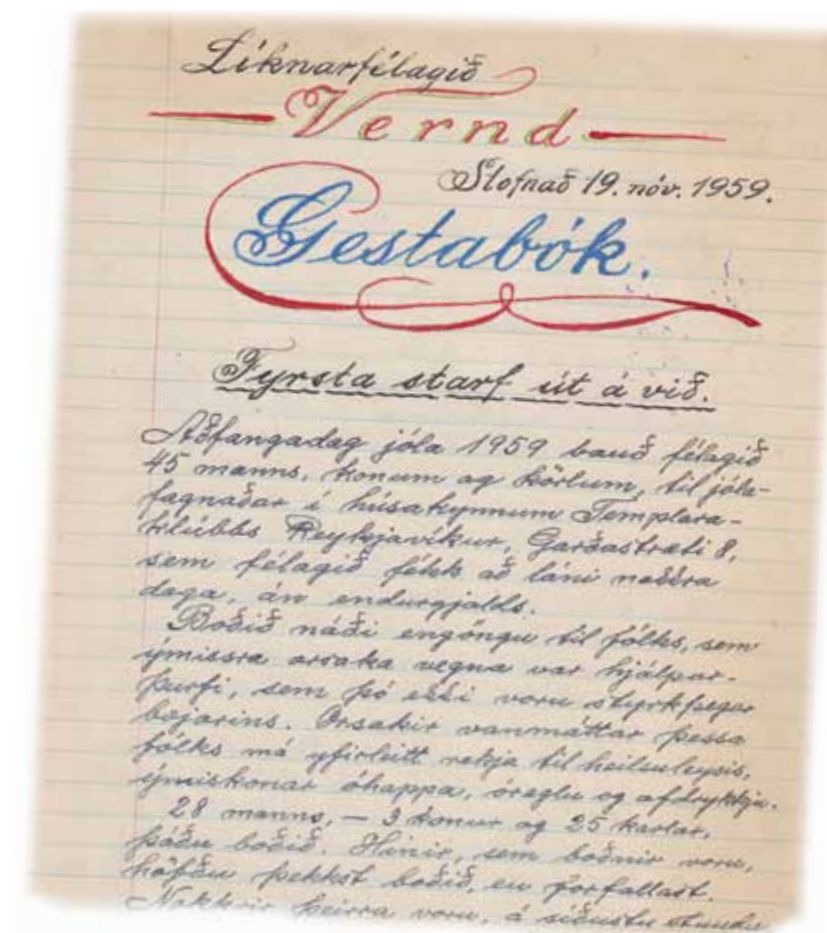 Líknarfélagið
Vernd
Stofnað 19. nóv. 1959.
Gestabók.
Fyrsta starf út á við.
Aðfangadag jóla 1959 bauð félagið
45 manns, konum og körlum, til jóla-
fagnaðar í húsakynnum Templara-
klúbbs Reykjavíkur, Garðastræti 8,
sem félagið fékk að láni nokkra
daga, án endurgjalds.
Boðið náði engöngu til fólks, sem
ýmissra orsaka vegna var hjálpar-
þurfi, sem þó ekki voru styrkþegar
bæjarins. Orsakir vanmáttar þessa
fólks má yfirleitt rekja til heilsuleysis,
ýmiskonar óhappa, óreglu og ofdrykkju.
28 manns, — 3 konur og 25 karlar,
þáðu boðið. Hinir, sem boðnir voru,
höfðu þekkst boðið, en forfallast.
Nokkrir þeirra voru, á síðustu stundu